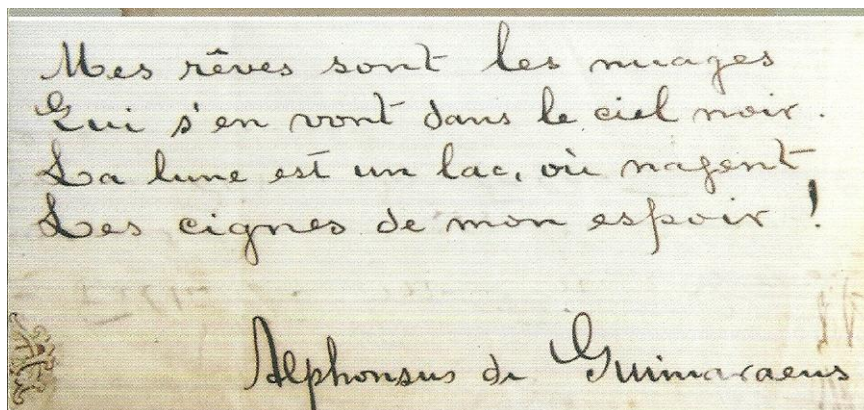 Mes rêves sont les nuages
Qui s'en vont dans le ciel noir.
La lune est un lac, où nagent
Les cignes de mon espoir !
Alphonsus de Guimaraens